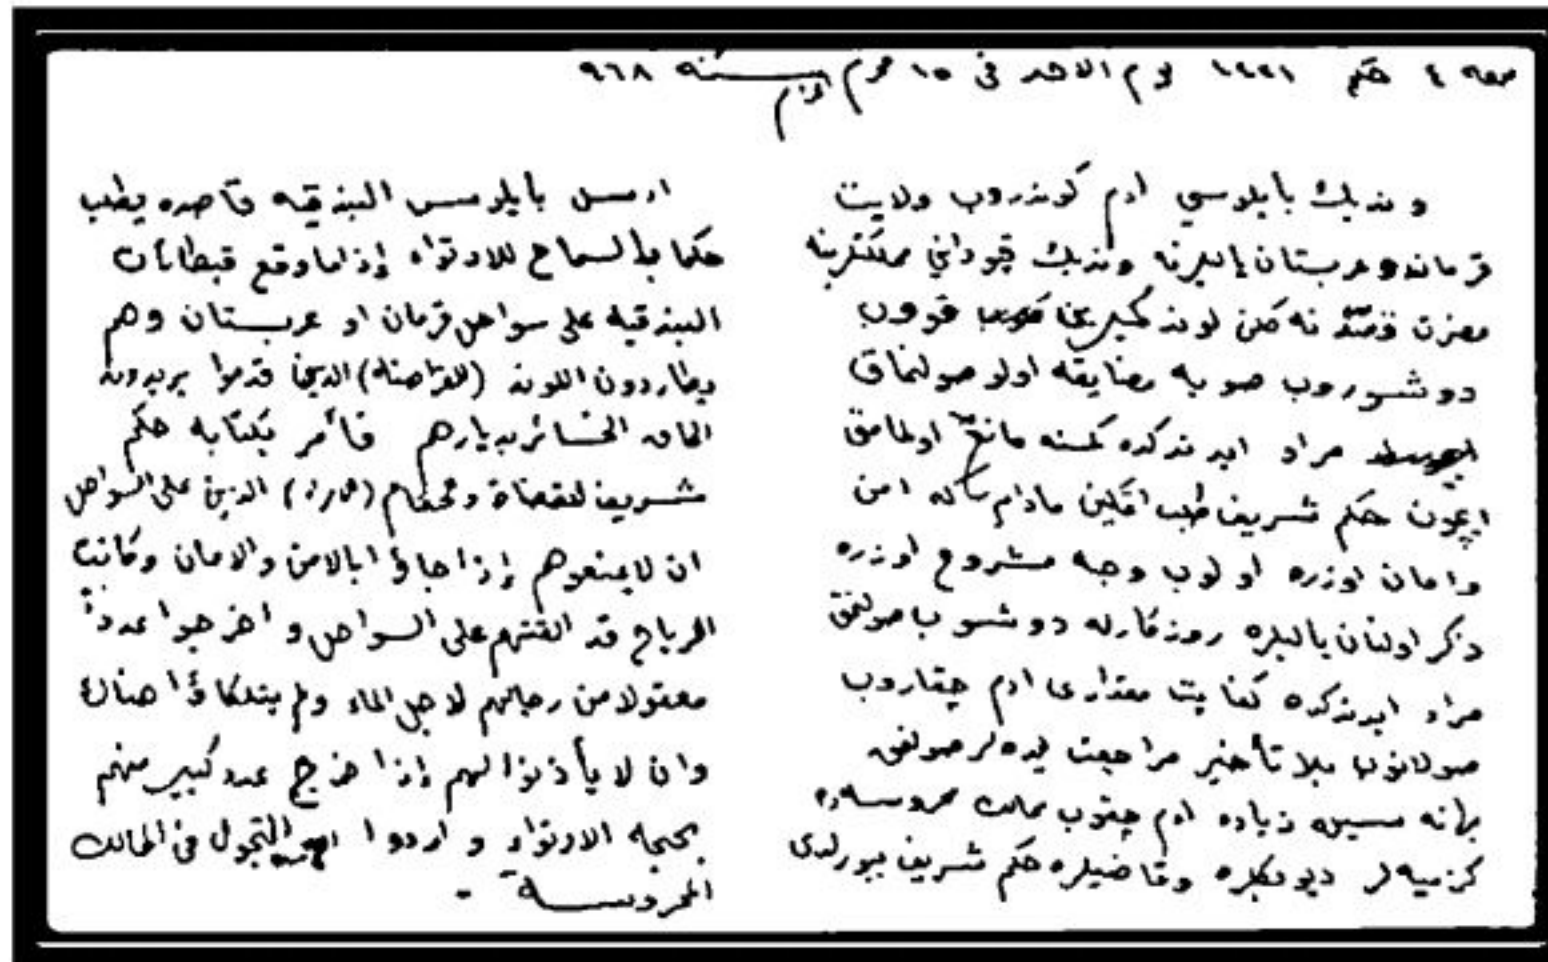 ٤ حكم ١٤٢١ يوم الاحد فى ١٥ محرم سنه ٩٦٨
وندیك بايلوسي ادم كوندروب ولايت
قرمان و عربستان يالیرنه وندیك قپوداني مملكتلرينه
مضرت لوند قووب
دوشوروب صويه مضايقه اولو صولنماق
مراد ایدندكده كمسنه مانع اولمامق
ایچون حكم شريف طلب اتمكین مادام كه امن
وامان اوزره اولوب وجه مشروع اوزره
ذكر اولنان يالیلره روزكارله دوشوب صولنمق
مراد ایدندكده كفايت مقداری ادم چیقاروب
صولانوب بلا تأخير مراجعت ایده لر صولنمق
بهانه سیله زیاده ادم چیقوب ممالك محروسه ده
كزمیه لر دیو بكلره وقاضیلره حكم شریف بیورلدی
ارسل بايلوس البندقيه قاصده يطلب
حكما بالسماح للارتواء إذا ما وقع قبطانان
البندقيه على سواحل قرمان او عربستان وهم
يطاردون اللوند (القراصنه) الذين قدموا يريدون
الحاق الخسائر بديارهم فأمر بكتابه حكم
شريف لقضاة وحكام الذين على السواحل
ان لايمنعوهم إذا جاؤا بالامن والامان وكانت
الرياح قد القتهم على السواحل و اخرجوا عدداً
معقولا من رجالهم لاجل الماء ولم يتلكاؤا هناك
وان لا يأذنوا لهم إذا خرج عدد كبير منهم
بحجه الارتواء و ارادوا التجول فى الممالك
المحروسة -